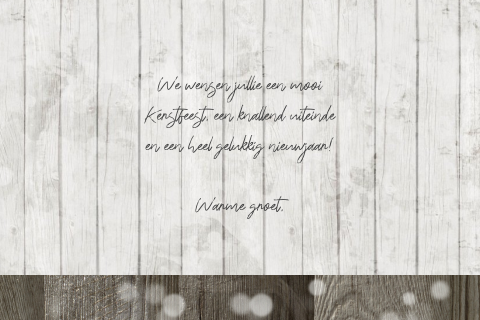 We wensen jullie een mooi
Kerstfeest, een knallend uiteinde
en een heel gelukkig nieuwjaar!
Warme groet,